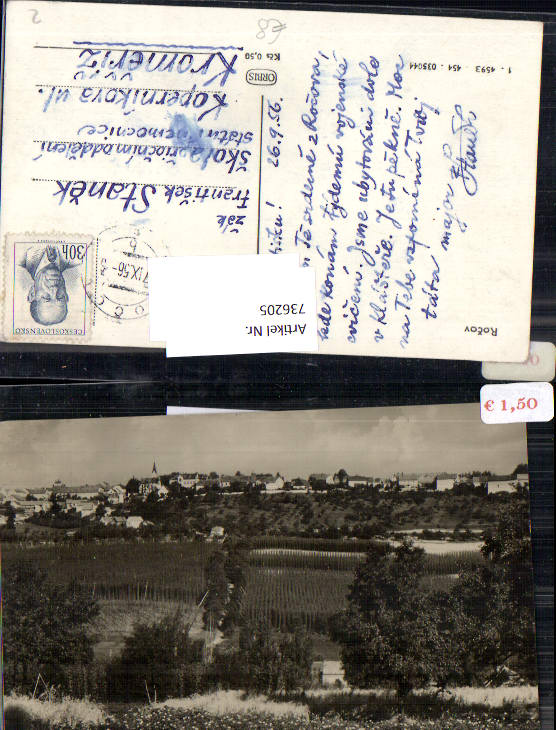 2
€8
1 - 4593 - 454 - 035044
Kčs 0,50
ORBIS
26.9.56.
Tě srdečně z Ročova,
kde konám týdenní vojenské
cvičení. Jsme ubytováni dole
v klášteře. Je tu pěkně. Moc
na Tebe vzpomíná Tvůj
táta major
Staněk
žák
František Staněk
Škola při očním oddělení
státní nemocnice
Koperníkova ul.
Kroměříž
ČESKOSLOVENSKO
30h
IX.56
Artikel Nr.
736205
Ročov
€ 1,50